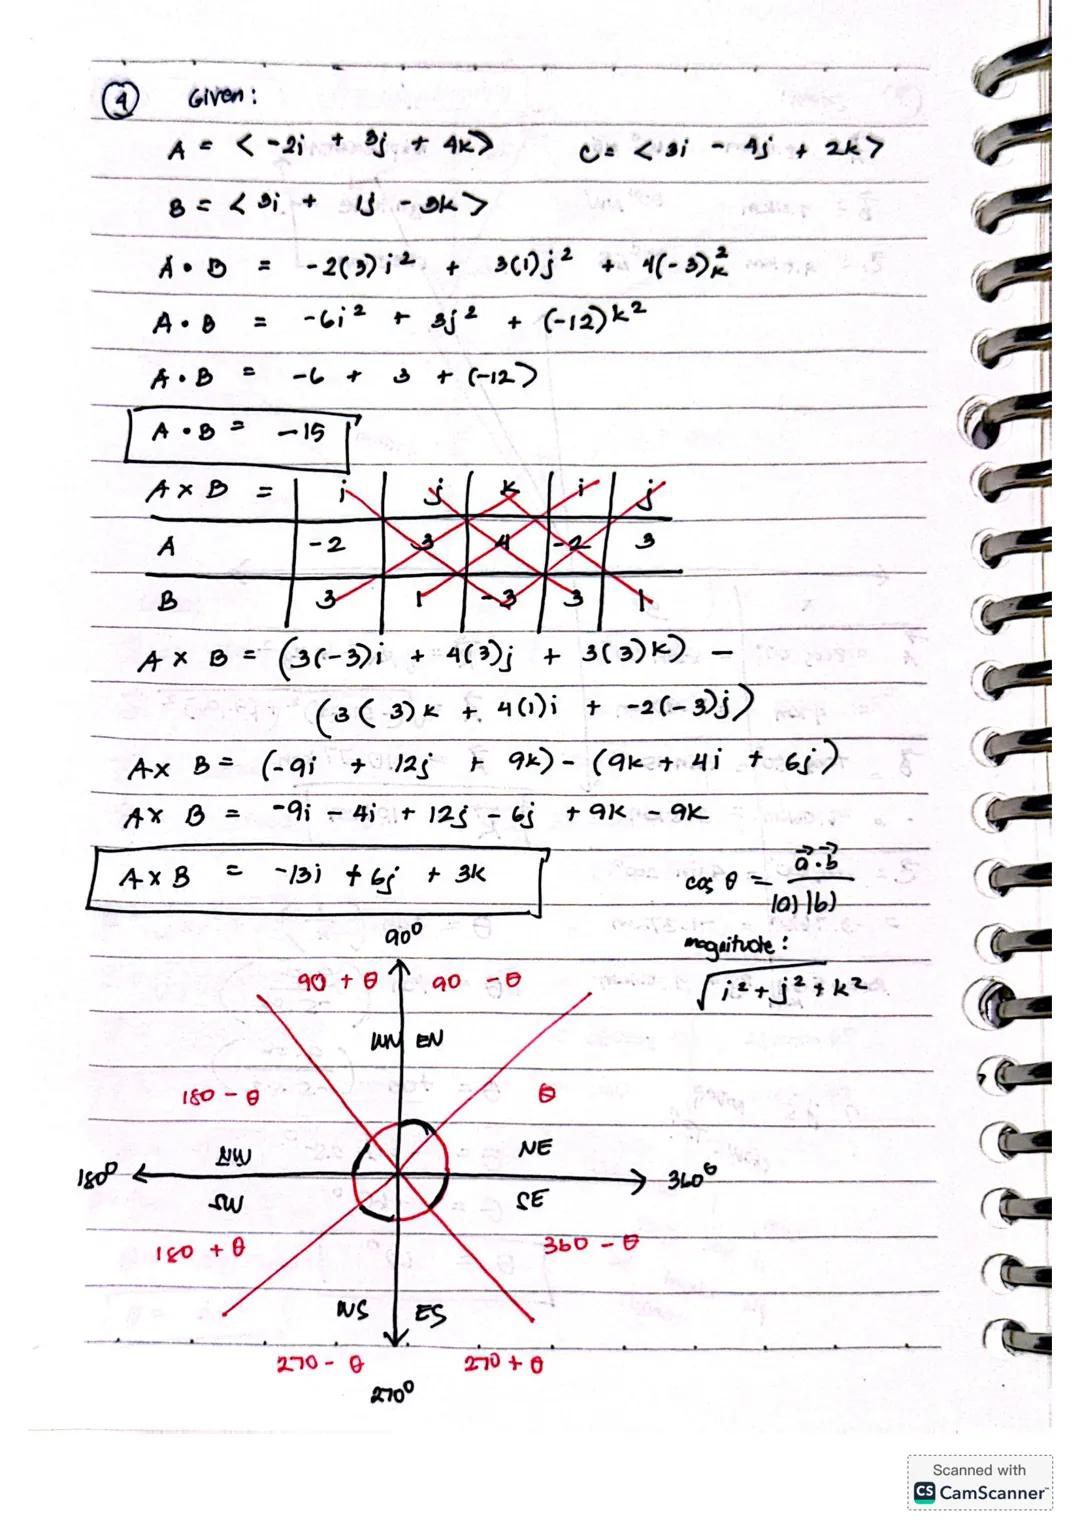 4 Given:
A = < -2i + 3j + 4k> C = <3i - 4j + 2k>
B = < 3i + 1j - 3k >
A • B = -2(3) i² + 3(1)j² + 4(-3)k²
A • B = -6i² + 3j² + (-12)k²
A • B = -6 + 3 + (-12)
A • B = -15
A × B = i j k i j
A -2 3 4 -2 3
B 3 1 -3 3 1
A × B = (3(-3)i + 4(3)j + 3(3)k) -
(3(3)k + 4(1)i + -2(-3)j)
A × B = (-9i + 12j + 9k) - (9k + 4i + 6j)
A × B = -9i - 4i + 12j - 6j + 9k - 9k
A × B = -13i + 6j + 3k
cos θ = a⃗ • b⃗ / |a| |b|
magnitude:
√i² + j² + k²
90°
90 + θ 90 - θ
WN EN
180 - θ θ
NW NE
180° 360°
SW SE
180 + θ 360 - θ
WS ES
270 - θ 270 + θ
270°
Scanned with
CS CamScanner